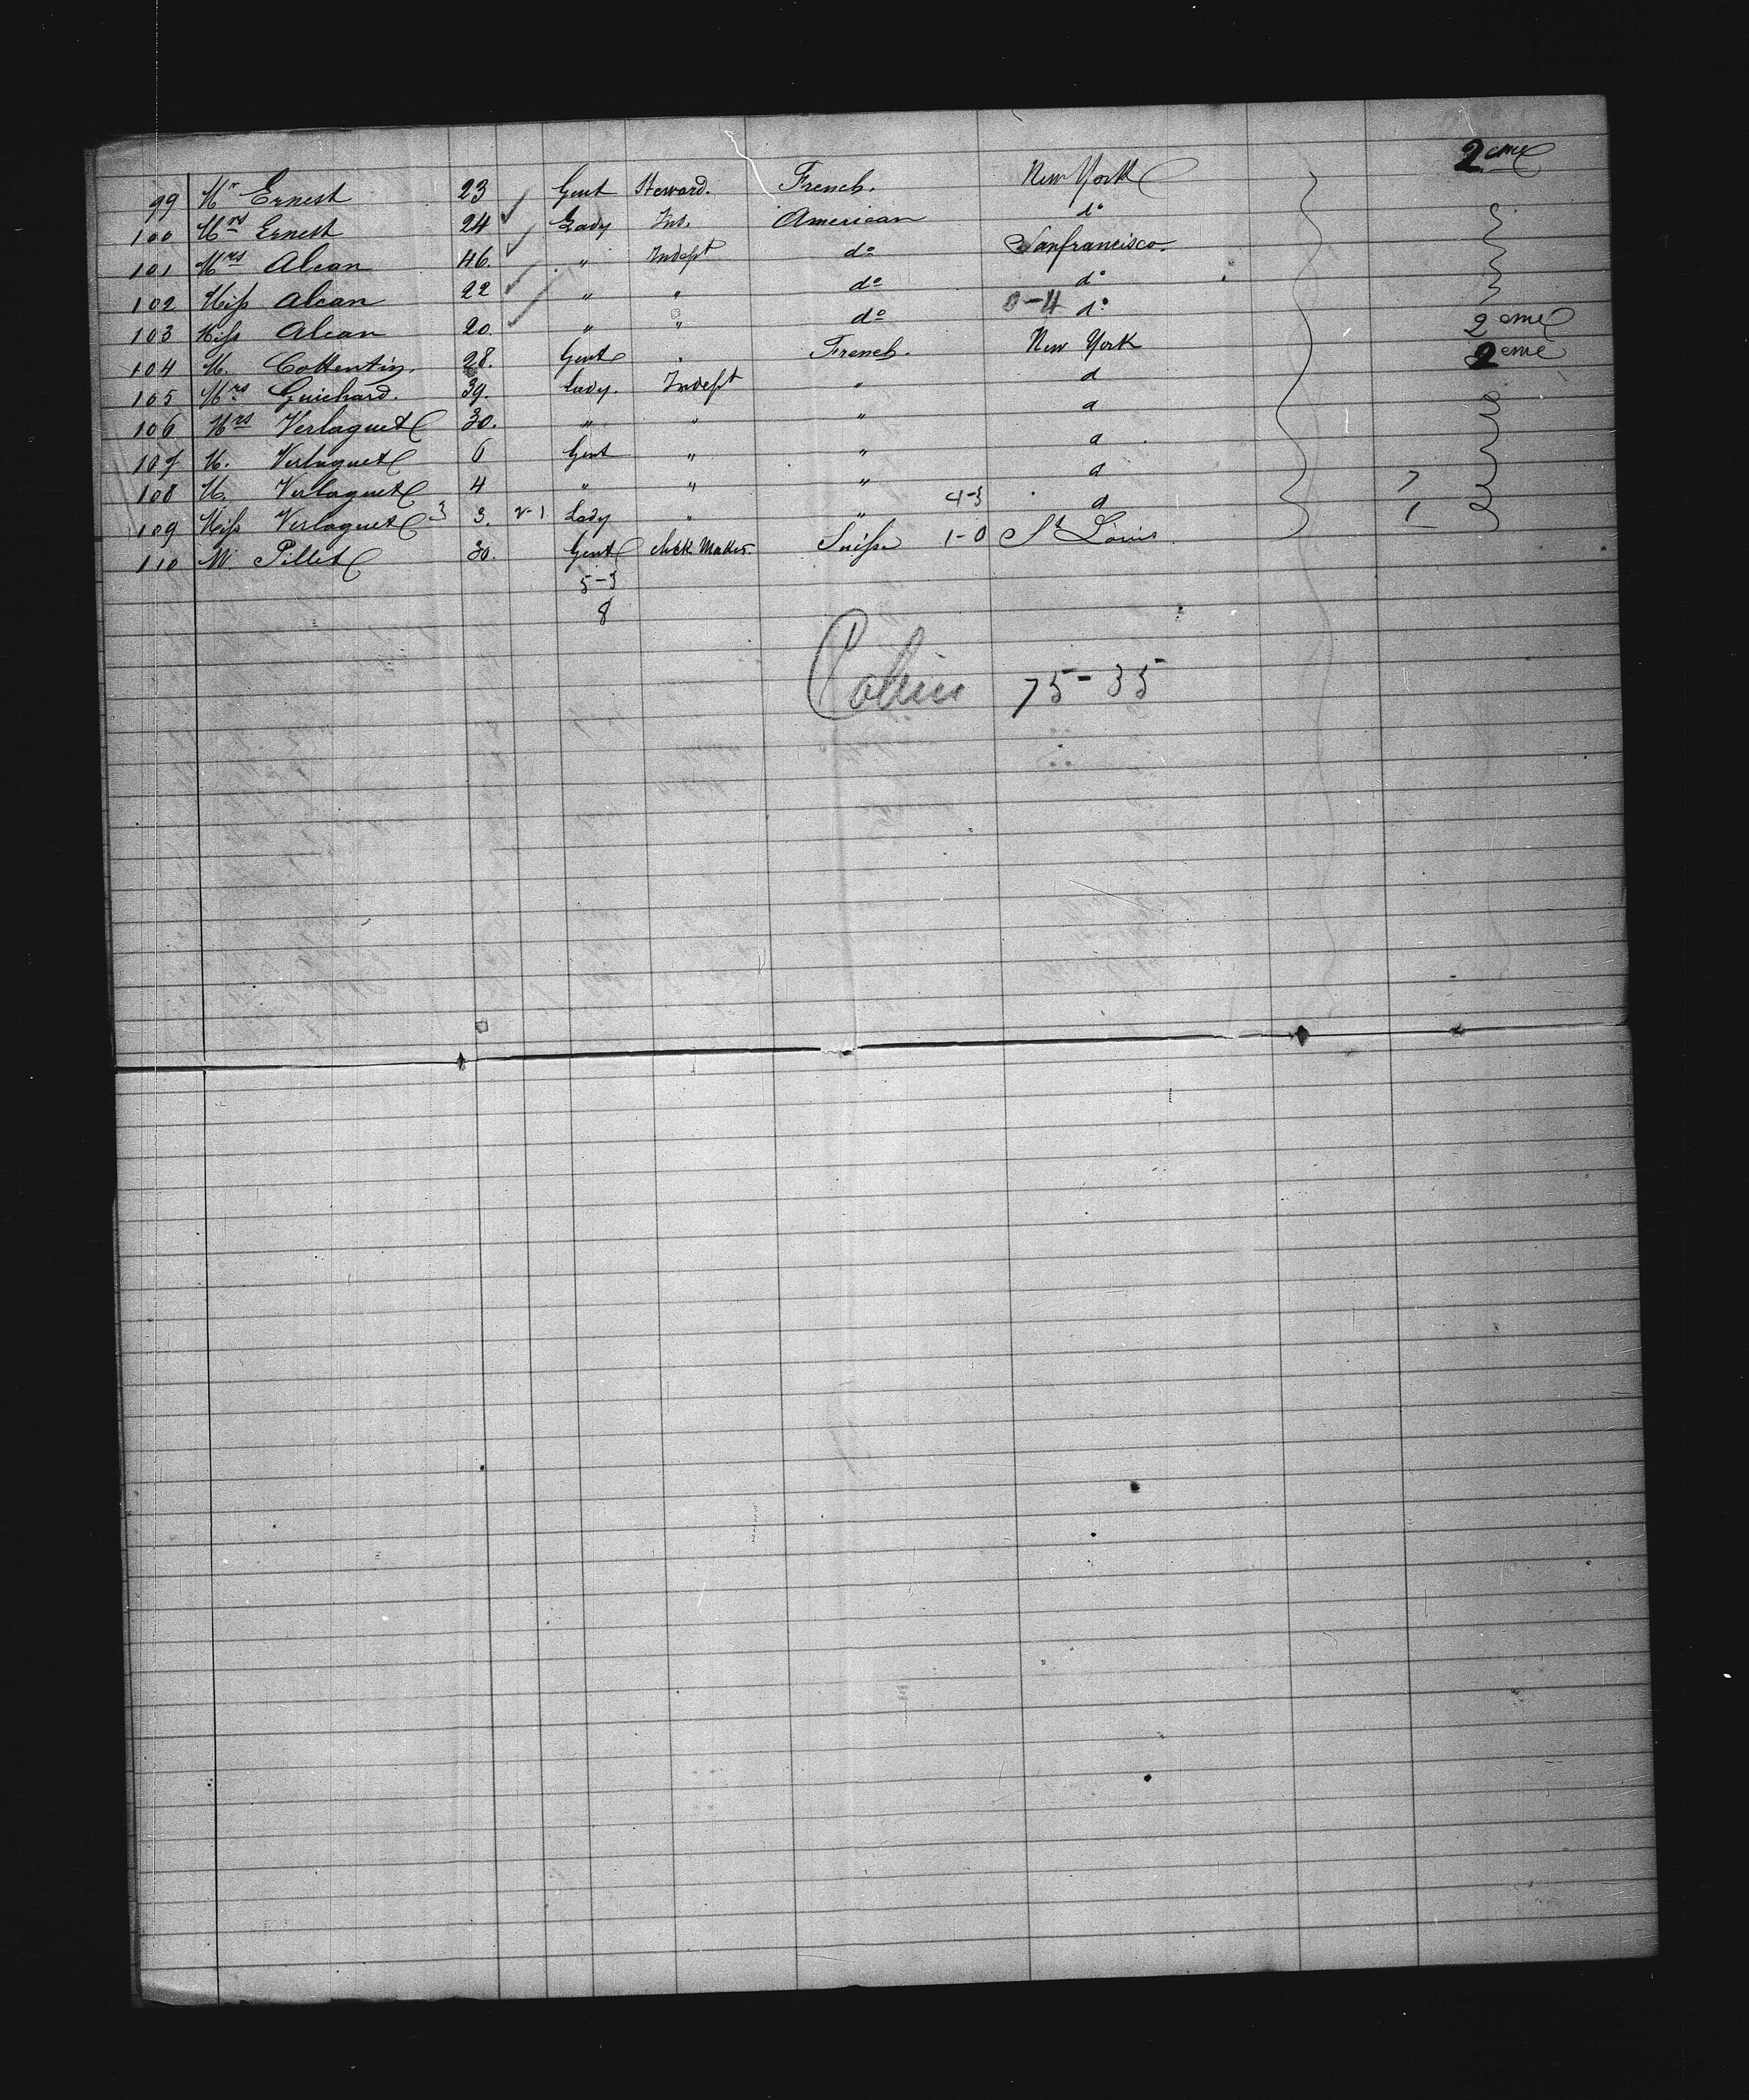 2eme
99 Mr Ernest 23 Gent Steward. French. New York
100 Mrs Ernest 24 Lady Ind. American do
101 Mrs Alcan 46. " Indept do Sanfrancisco
102 Miss Alcan 22 " " do do
103 Miss Alcan 20 " " do 0-4 do 2eme
104 M. Cottentin. 28. Gent " French. New York 2eme
105 Mrs Guichard. 39. Lady. Indept " d
106 Mrs Verlaguet 30. " " " d
107 M. Verlaguet 6 Gent " " d
108 M. Verlaguet 4 " " " d 7
109 Miss Verlaguet 3 3. 2-1 Lady " " 4-3 d 1
110 M. Pillet 30. Gent clock Maker Suisse 1-0 St Louis
5-3
8
75-35